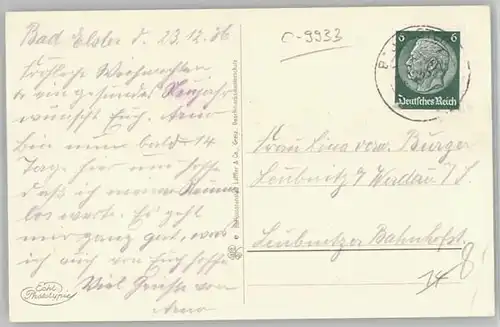 Bad Elster d. 23.12.36
Fröhliche Weihnachten
u ein gesundes Neujahr
wünscht Euch. Arno
bin nun bald 14
Tage hier und hoffe
daß ich meine
los werde. Es geht
mir ganz gut, was
ich auch von Euch hoffe
Viel Grüsse von
Arno
Echt
Phototypie
C-9933
6 6
Deutsches Reich
Frau Lina verw. Burger
Leubnitz b/ Werdau i/S.
Leubnitzer Bahnhofst.
8